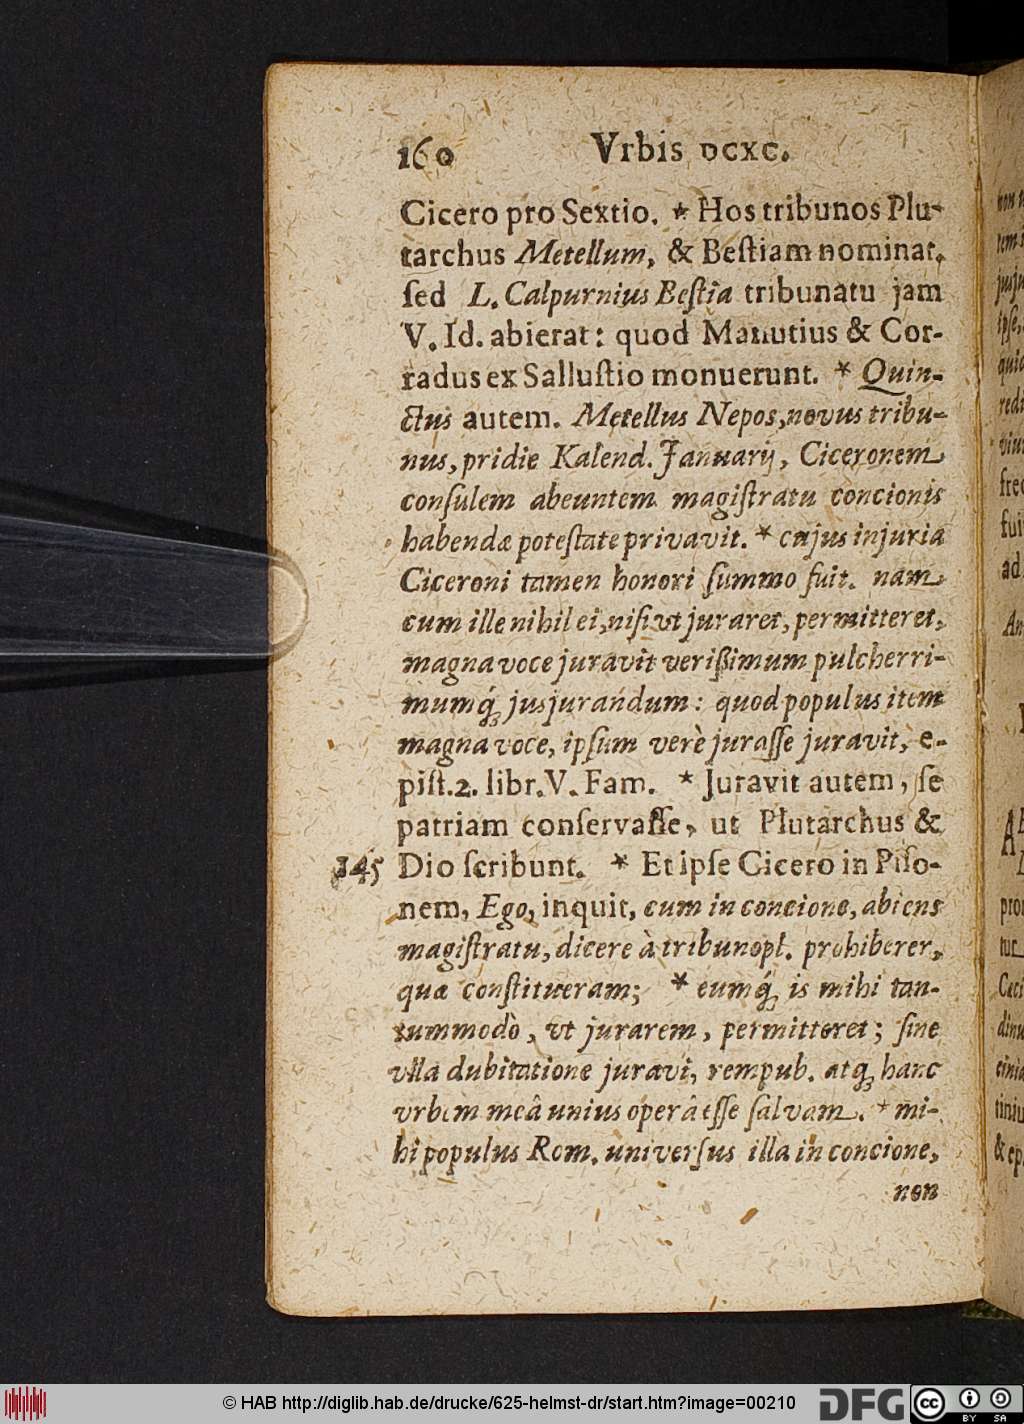 160 Vrbis DCXC.
Cicero pro Sextio. * Hos tribunos Plu-
tarchus Metellum, & Beſtiam nominat,
ſed L. Calpurnius Beſtia tribunatu jam
V. Id. abierat: quod Manutius & Cor-
radus ex Salluſtio monuerunt. * Quin-
ctus autem. Metellus Nepos, novus tribu-
nus, pridie Kalend. Januarij, Ciceronem
conſulem abeuntem magiſtratu concionis
habendæ poteſtate privavit. * cujus injuria
Ciceroni tamen honori ſummo fuit. nam
cum ille nihil ei, niſi vt juraret, permitteret,
magna voce juravit verißimum pulcherri-
mumq́; jusjurandum: quod populus item
magna voce, ipſum verè juraſſe juravit, e-
piſt. 2. libr. V. Fam. * Juravit autem, ſe
patriam conſervaſſe, ut Plutarchus &
345 Dio ſcribunt. * Et ipſe Cicero in Piſo-
nem, Ego, inquit, cum in concione, abiens
magiſtratu, dicere à tribuno pl. prohiberer,
quæ conſtitueram; * eumq́; is mihi tan-
tummodò, vt jurarem, permitteret; ſine
vlla dubitatione juravi, rempub. atq; hanc
vrbem meâ unius operâ eſſe ſalvam. * mi-
hi populus Rom. univerſus illa in concione,
non
© HAB http://diglib.hab.de/drucke/625-helmst-dr/start.htm?image=00210
DFG
cc
BY SA